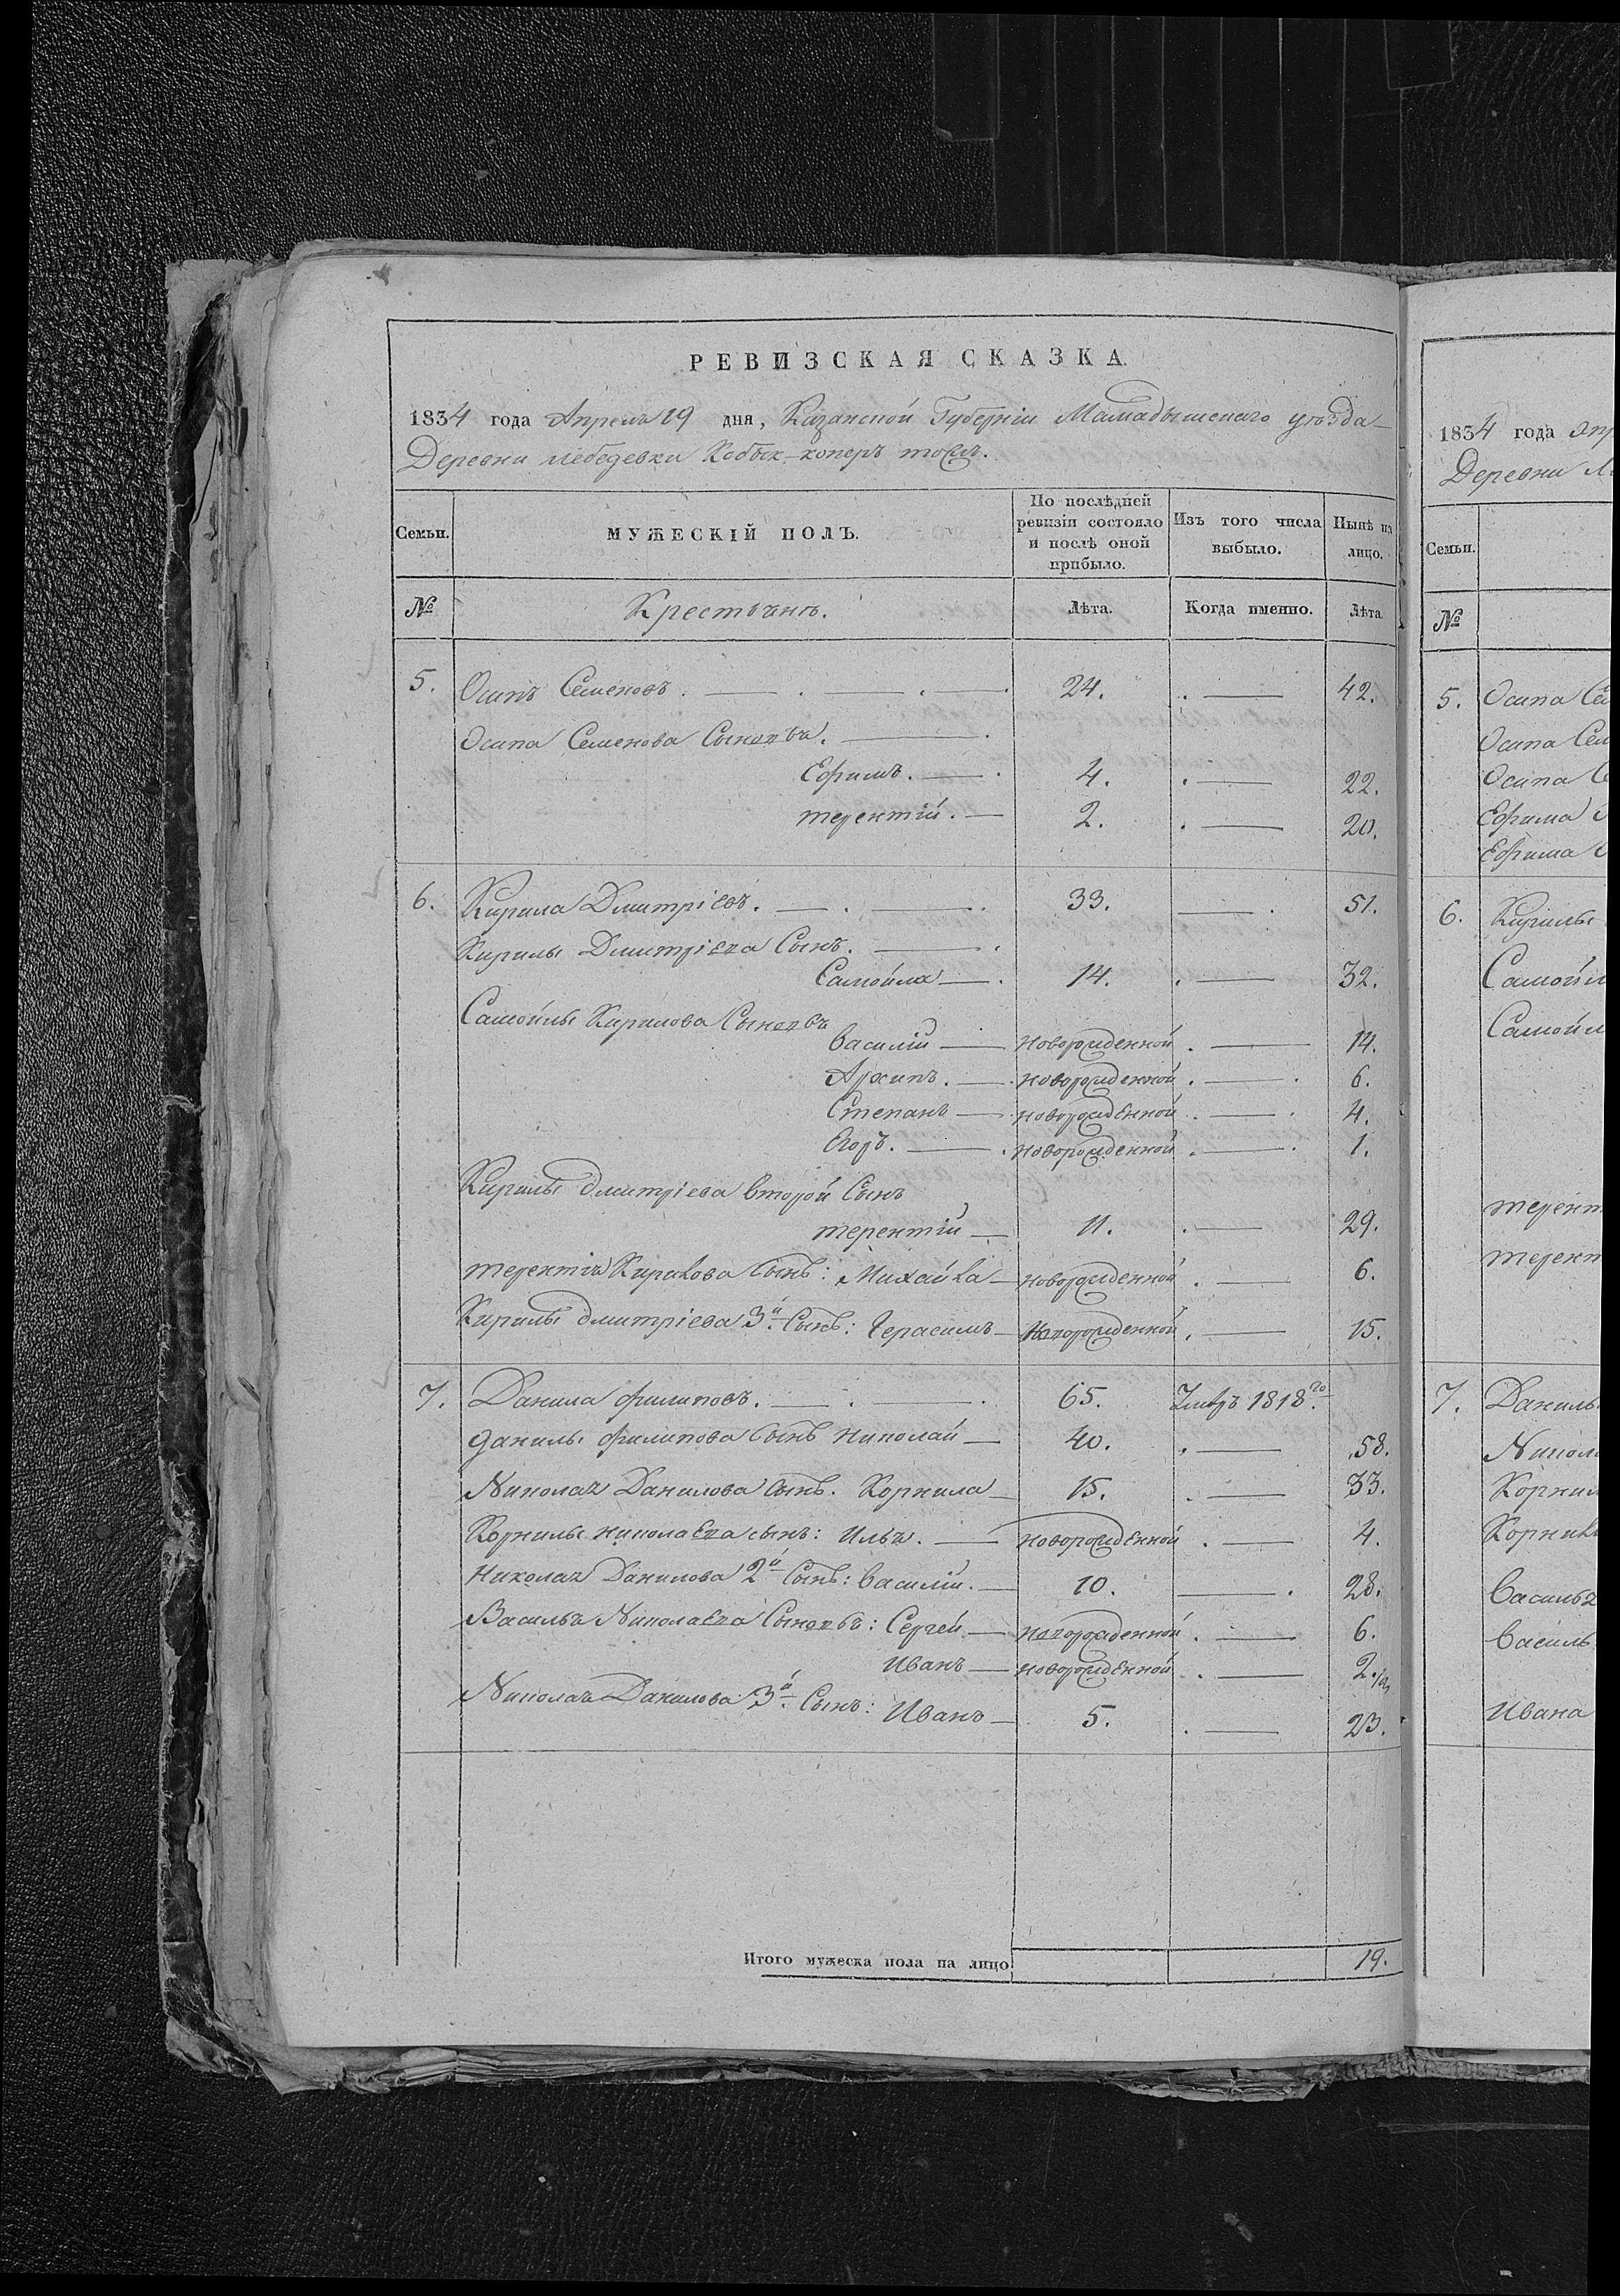 РЕВИЗСКАЯ СКАЗКА
1834 года Апреля 19 дня, Казанской Губерніи Мамадышскаго уѣзда
Деревни лебедевки Кобык-коперъ тожъ.
Семьи. МУЖЕСКІЙ ПОЛЪ. По послѣдней ревизіи состояло и послѣ оной прибыло. Изъ того числа выбыло. Нынѣ на лицо.
№ Крестьянъ. Лѣта. Когда именно. Лѣта.
5. Осипъ Семеновъ. 24. 42.
Осипа Семенова Сыновья.
Ефимъ. 4. 22.
терентій. 2. 20.
6. Кирила Дмитріевъ. 33. 51.
Кирилы Дмитріева Сынъ.
Самойла 14. 32.
Самойлы Кирилова Сыновья
Василій новорожденной 14.
Архипъ. новорожденной 6.
Степанъ новорожденной 4.
Егоръ. новорожденной 1.
Кирилы дмитріева второй Сынъ
терентій 11. 29.
терентія Кирилова Сынъ: Михайла новорожденной 6.
Кирилы дмитріева 3й Сынъ: Герасимъ новорожденной 15.
7. Данила филиповъ. 65. 1818го
данилы филипова Сынъ николай 40. 58.
Николая Данилова Сынъ. Корнила 15. 33.
Корнилы николаева сынъ: Илья. новорожденной 4.
Николая Данилова 2й Сынъ: Василій. 10. 28.
Василья Николаева Сыновья: Сергей новорожденной 6.
Иванъ новорожденной 2.
Николая Данилова 3й Сынъ: Иванъ 5. 23.
Итого мужеска пола на лицо 19.
1834 года
Деревни
Семьи.
№
5. Осипа
Осипа
Осипа
Ефима
Ефима
6. Кирилы
7.
Ивана